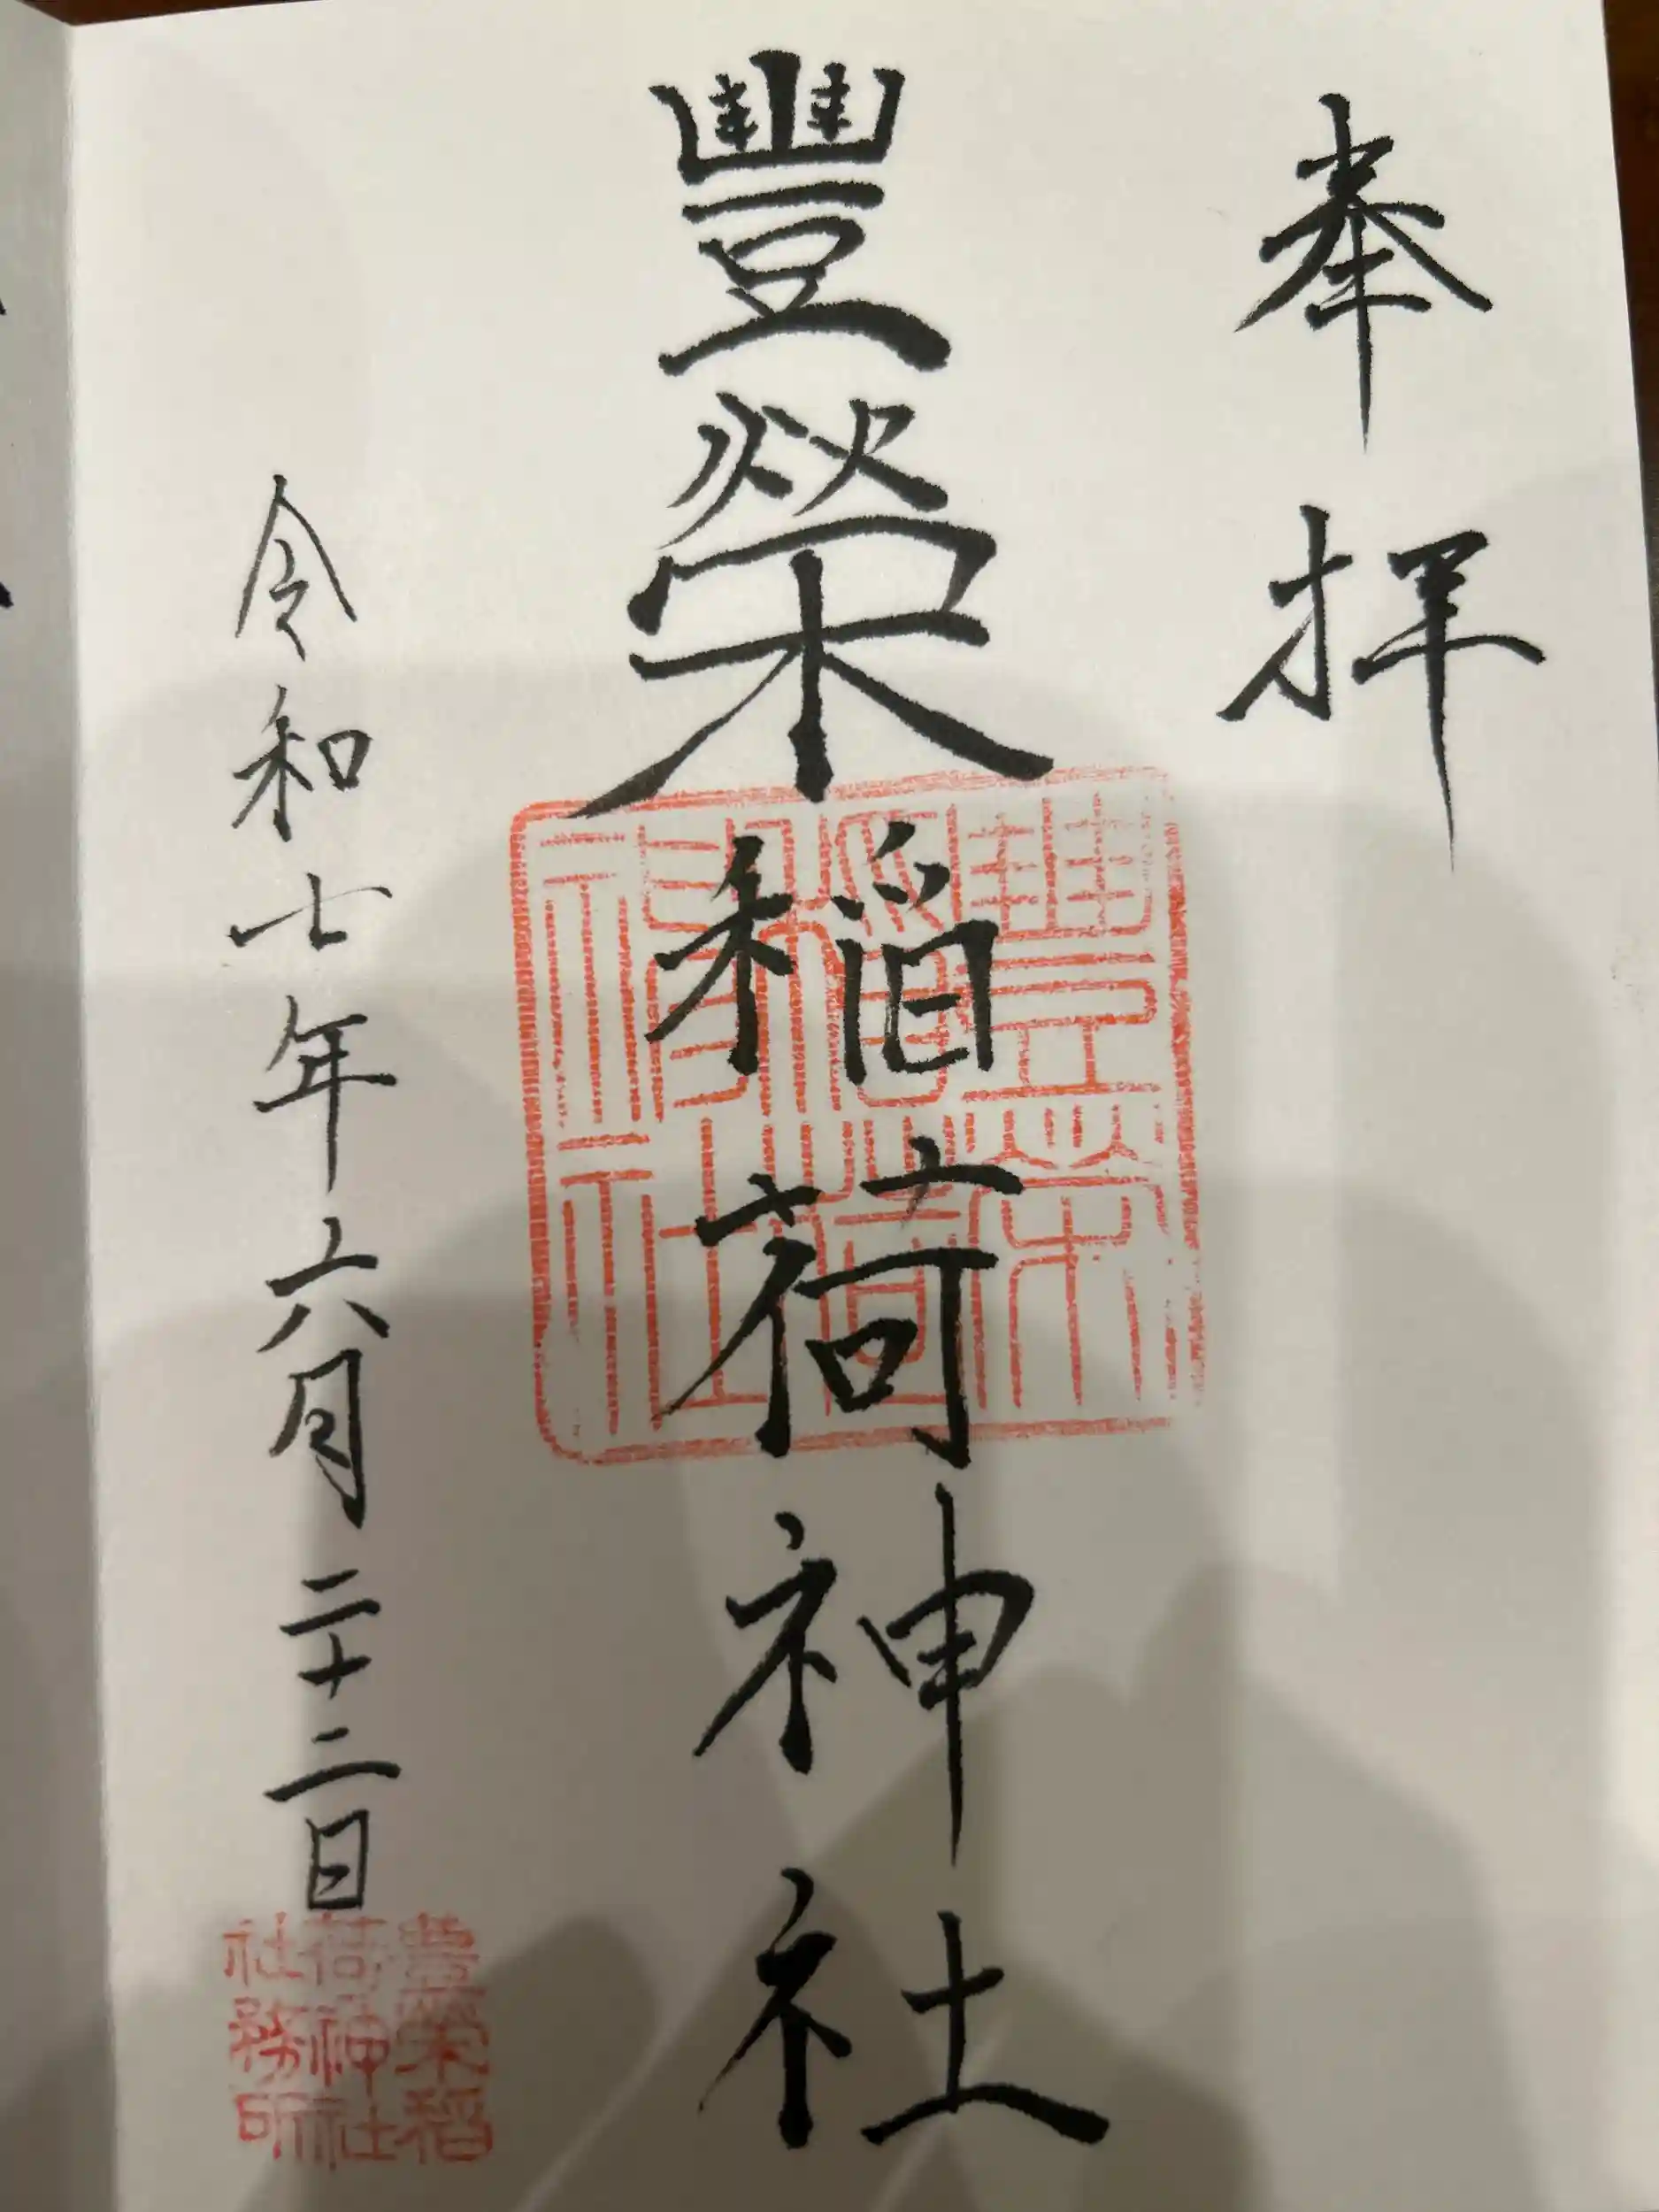 奉拝
豐榮稲荷神社
豊榮稲荷神社
令和七年六月二十二日
豊榮稲荷神社社務所